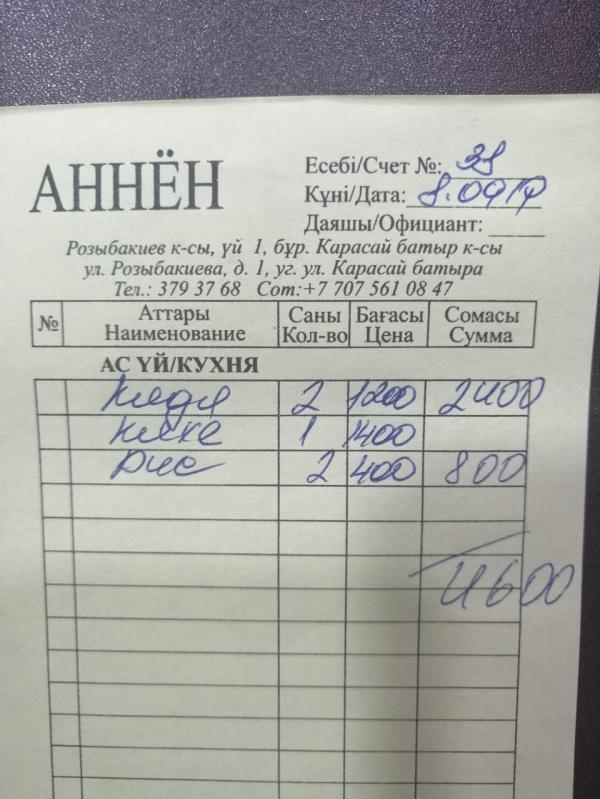 АННЁН
Есебі/Счет №: 38
Күні/Дата: 8.09
Даяшы/Официант:
Розыбакиев к-сы, үй 1, бұр. Карасай батыр к-сы
ул. Розыбакиева, д. 1, уг. ул. Карасай батыра
Тел.: 379 37 68 Сот:+7 707 561 08 47
№ Аттары Саны Бағасы Сомасы
Наименование Кол-во Цена Сумма
АС ҮЙ/КУХНЯ
2 1200 2400
1 1400
Рис 2 400 800
4600